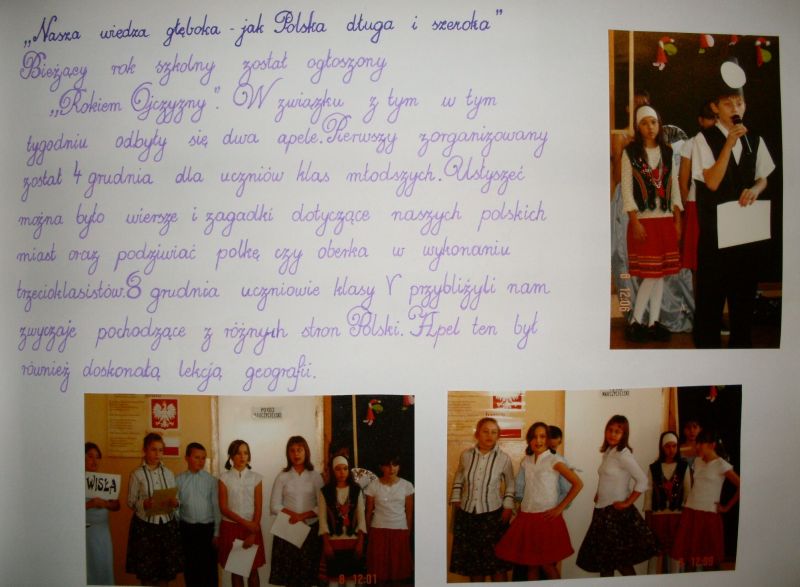 „Nasza wiedza głęboka - jak Polska długa i szeroka”
Bieżący rok szkolny został ogłoszony
„Rokiem Ojczyzny”. W związku z tym w tym
tygodniu odbyły się dwa apele. Pierwszy zorganizowany
został 4 grudnia dla uczniów klas młodszych. Usłyszeć
można było wiersze i zagadki dotyczące naszych polskich
miast oraz podziwiać polkę czy oberka w wykonaniu
trzecioklasistów. 8 grudnia uczniowie klasy V przybliżyli nam
zwyczaje pochodzące z różnych stron Polski. Apel ten był
również doskonałą lekcją geografii.
8 12:06
POKÓJ
NAUCZYCIELSKI
WISŁA
8 12:01
NAUCZYCIELSKI